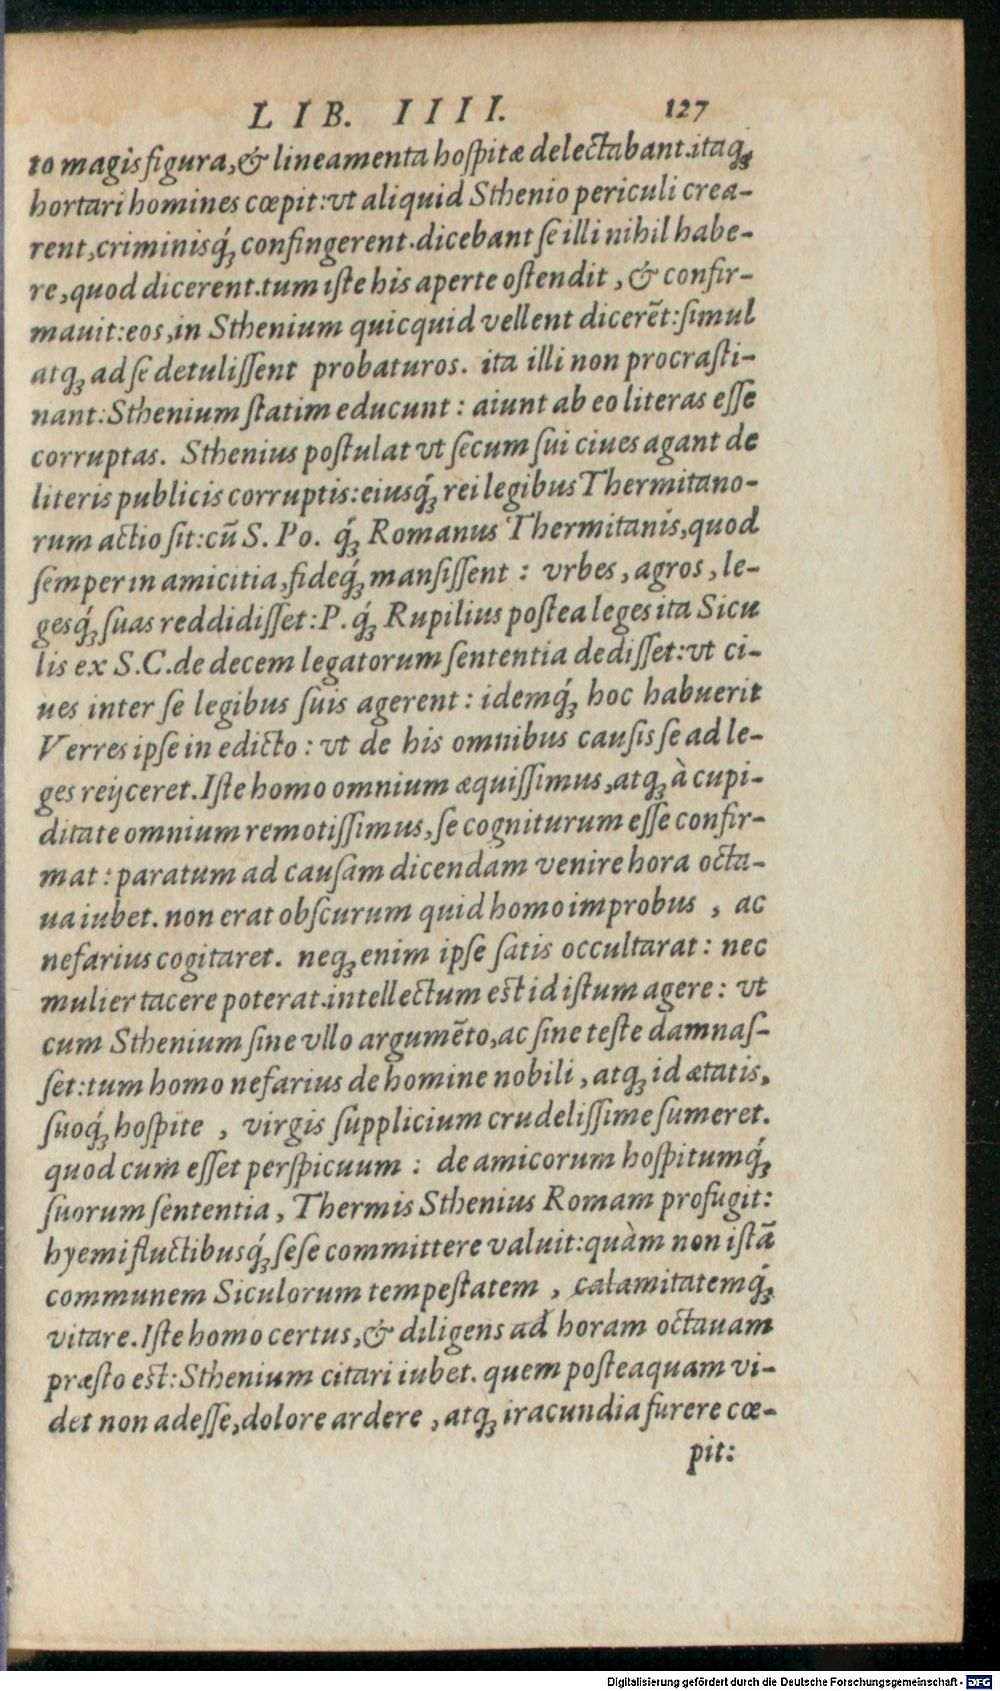 LIB. IIII. 127
to magis figura,& lineamenta hospitæ delectabant.itaq;
hortari homines cœpit:vt aliquid Sthenio periculi crea-
rent,criminisq́; confingerent.dicebant se illi nihil habe-
re,quod dicerent.tum iste his aperte ostendit , & confir-
mauit:eos,in Sthenium quicquid vellent dicerēt:simul
atq; ad se detulissent probaturos. ita illi non procrasti-
nant:Sthenium statim educunt : aiunt ab eo literas esse
corruptas. Sthenius postulat vt secum sui ciues agant de
literis publicis corruptis:eiusq́; rei legibus Thermitano-
rum actio sit:cū S. Po. q́; Romanus Thermitanis,quod
semper in amicitia,fideq́; mansissent : vrbes , agros , le-
gesq́; suas reddidisset:P. q́; Rupilius postea leges ita Sicu
lis ex S.C.de decem legatorum sententia dedisset:vt ci-
ues inter se legibus suis agerent : idemq́; hoc habuerit
Verres ipse in edicto : vt de his omnibus causis se ad le-
ges reijceret.Iste homo omnium æquissimus,atq; à cupi-
ditate omnium remotissimus,se cogniturum esse confir-
mat : paratum ad causam dicendam venire hora octa-
ua iubet. non erat obscurum quid homo improbus , ac
nefarius cogitaret. neq; enim ipse satis occultarat : nec
mulier tacere poterat.intellectum est id istum agere : vt
cum Sthenium sine vllo argumēto,ac sine teste damnas-
set:tum homo nefarius de homine nobili , atq; id ætatis,
suoq́; hospite , virgis supplicium crudelissime sumeret.
quod cum esset perspicuum : de amicorum hospitumq́;
suorum sententia , Thermis Sthenius Romam profugit:
hyemi fluctibusq́; sese committere valuit:quàm non istā
communem Siculorum tempestatem , calamitatemq́;
vitare.Iste homo certus,& diligens ad horam octauam
præsto est:Sthenium citari iubet. quem posteaquam vi-
det non adesse,dolore ardere , atq; iracundia furere cœ-
pit:
Digitalisierung gefördert durch die Deutsche Forschungsgemeinschaft - DFG